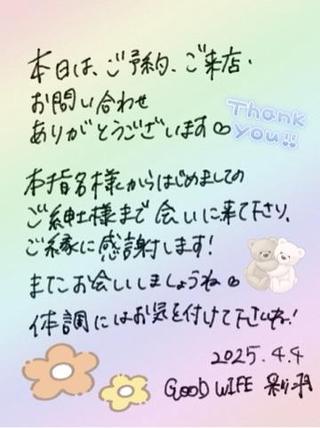 本日は、ご予約、ご来店・
お問い合わせ
ありがとうございます♡
Thank
you!!
本指名様からはじめましての
ご紳士様まで会いに来て下さり、
ご縁に感謝します!
またお会いしましょうね♡
体調にはお気を付けて下さいね!
2025.4.4
GOOD WIFE